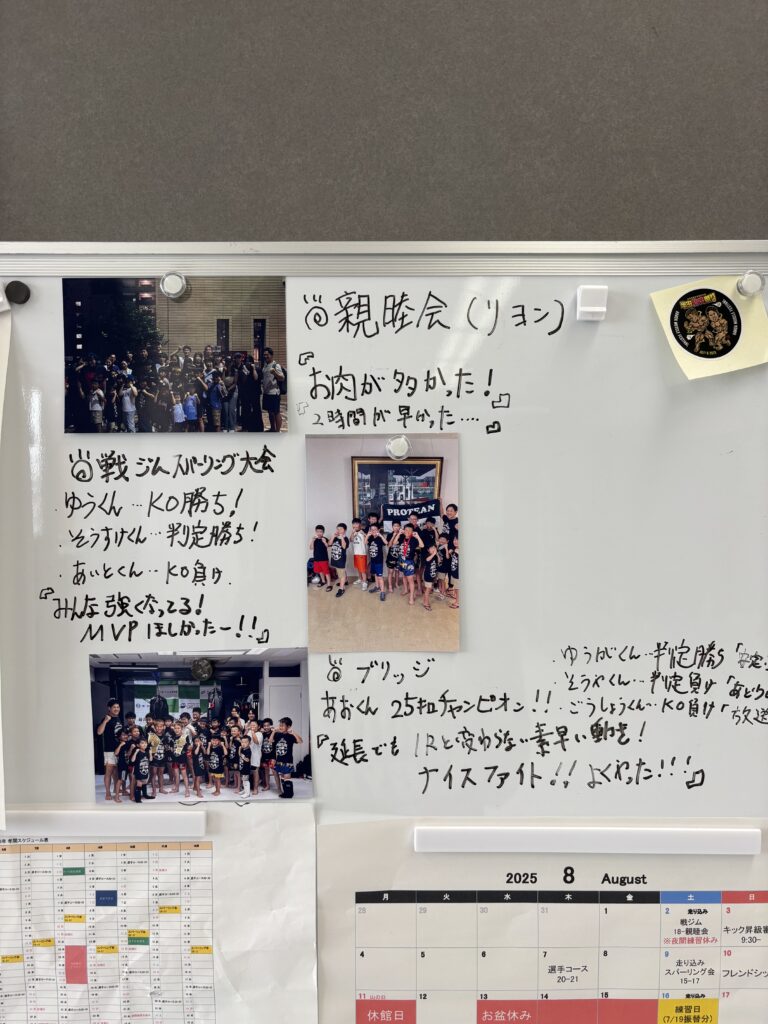 親睦会（リヨン）
『お肉が多かった！
2時間が早かった‥‥』
戦ジムスパーリング大会
ゆうくん‥KO勝ち！
・そうすけくん‥判定勝ち！
・あいとくん‥KO負け.
『みんな強くなってる！
MVPほしかったー！！』
PROTEAN
ブリッジ
あおくん 25キロチャンピオン！！
『延長でも1Rと変わらない素早い動き！
ナイスファイト！！よくやった！！！』
・ゆうがくん‥判定勝ち「安定
・そうやくん‥判定負け
・ごうしょうくん‥KO負け「放送
年間スケジュール表
2025 8 August
月 火 水 木 金 土 日
28 29 30 31 1 2 走り込み 3
戦ジム
18-親睦会
※夜間練習休み
キック昇級審
9:30-
4 5 6 7 8 9 10
選手コース
20-21
走り込み
スパーリング会
15-17
フレンドシッ
11 山の日 12 13 14 15 16 17
休館日
お盆休み
練習日
(7/19振替分)